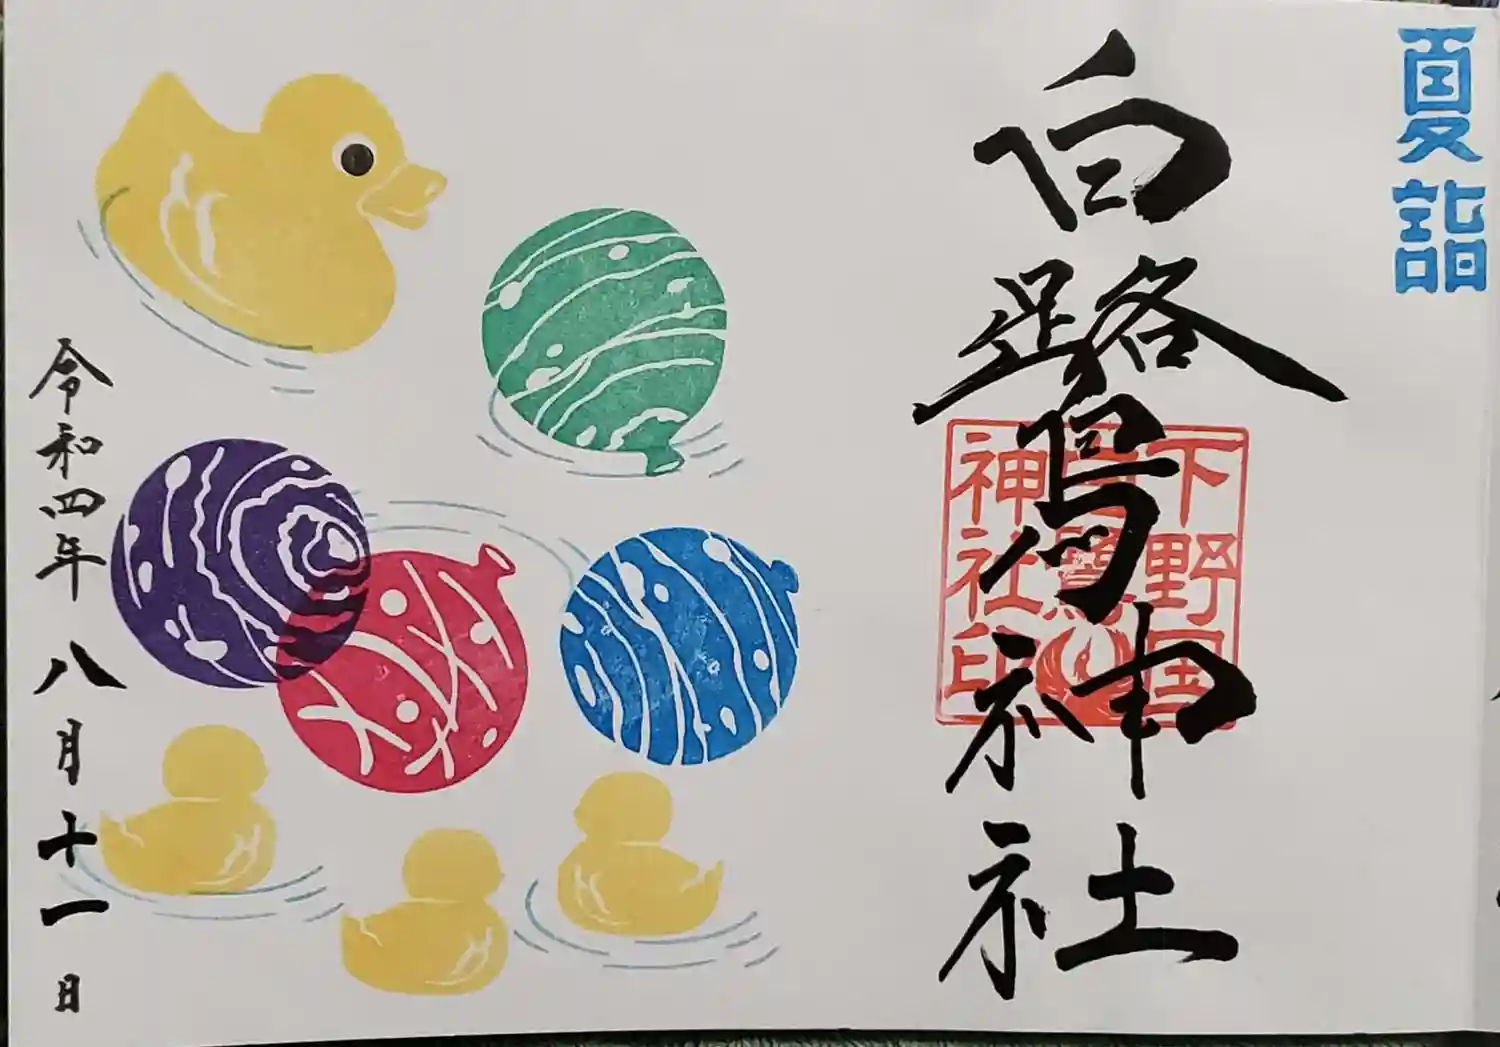 夏詣
白鷺神社
下野国
白鷺
神社印
令和四年八月十一日